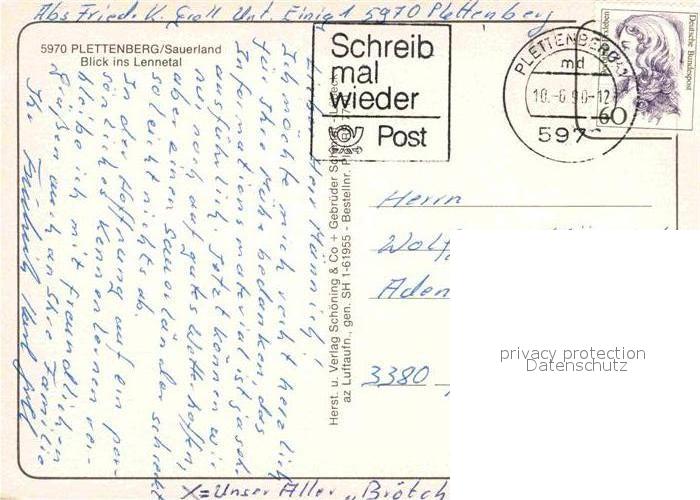 Abs Friedr. K. Groll Unt. Einigt 5970 Plettenberg
5970 PLETTENBERG/Sauerland
Blick ins Lennetal
Schreib
mal
wieder
Post
PLETTENBERG
md
10.-6.90-12
597
60
Deutsche Bundespost
Herrn
Wolf
Aden
3380
privacy protection
Datenschutz
Herst. u. Verlag Schöning & Co + Gebrüder Schm
az Luftaufn., gen. SH 1-61955 - Bestellnr. P
Lieber Herr Männich!
Ich möchte mich recht herzlich
für Ihre Mühe bedanken, das
Informationsmaterial ist ja sehr
ausführlich. Jetzt können wir
nur noch auf gutes Wetter hoffen,
aber einen Sauerländer schreckt
so leicht nichts ab.
In der Hoffnung auf ein per-
sönliches Kennenlernen ver-
bleibe ich mit freundlichen
Grüßen auch an Ihre Familie
Ihr Friedrich Karl Groll
X=Unser Aller „Brötch